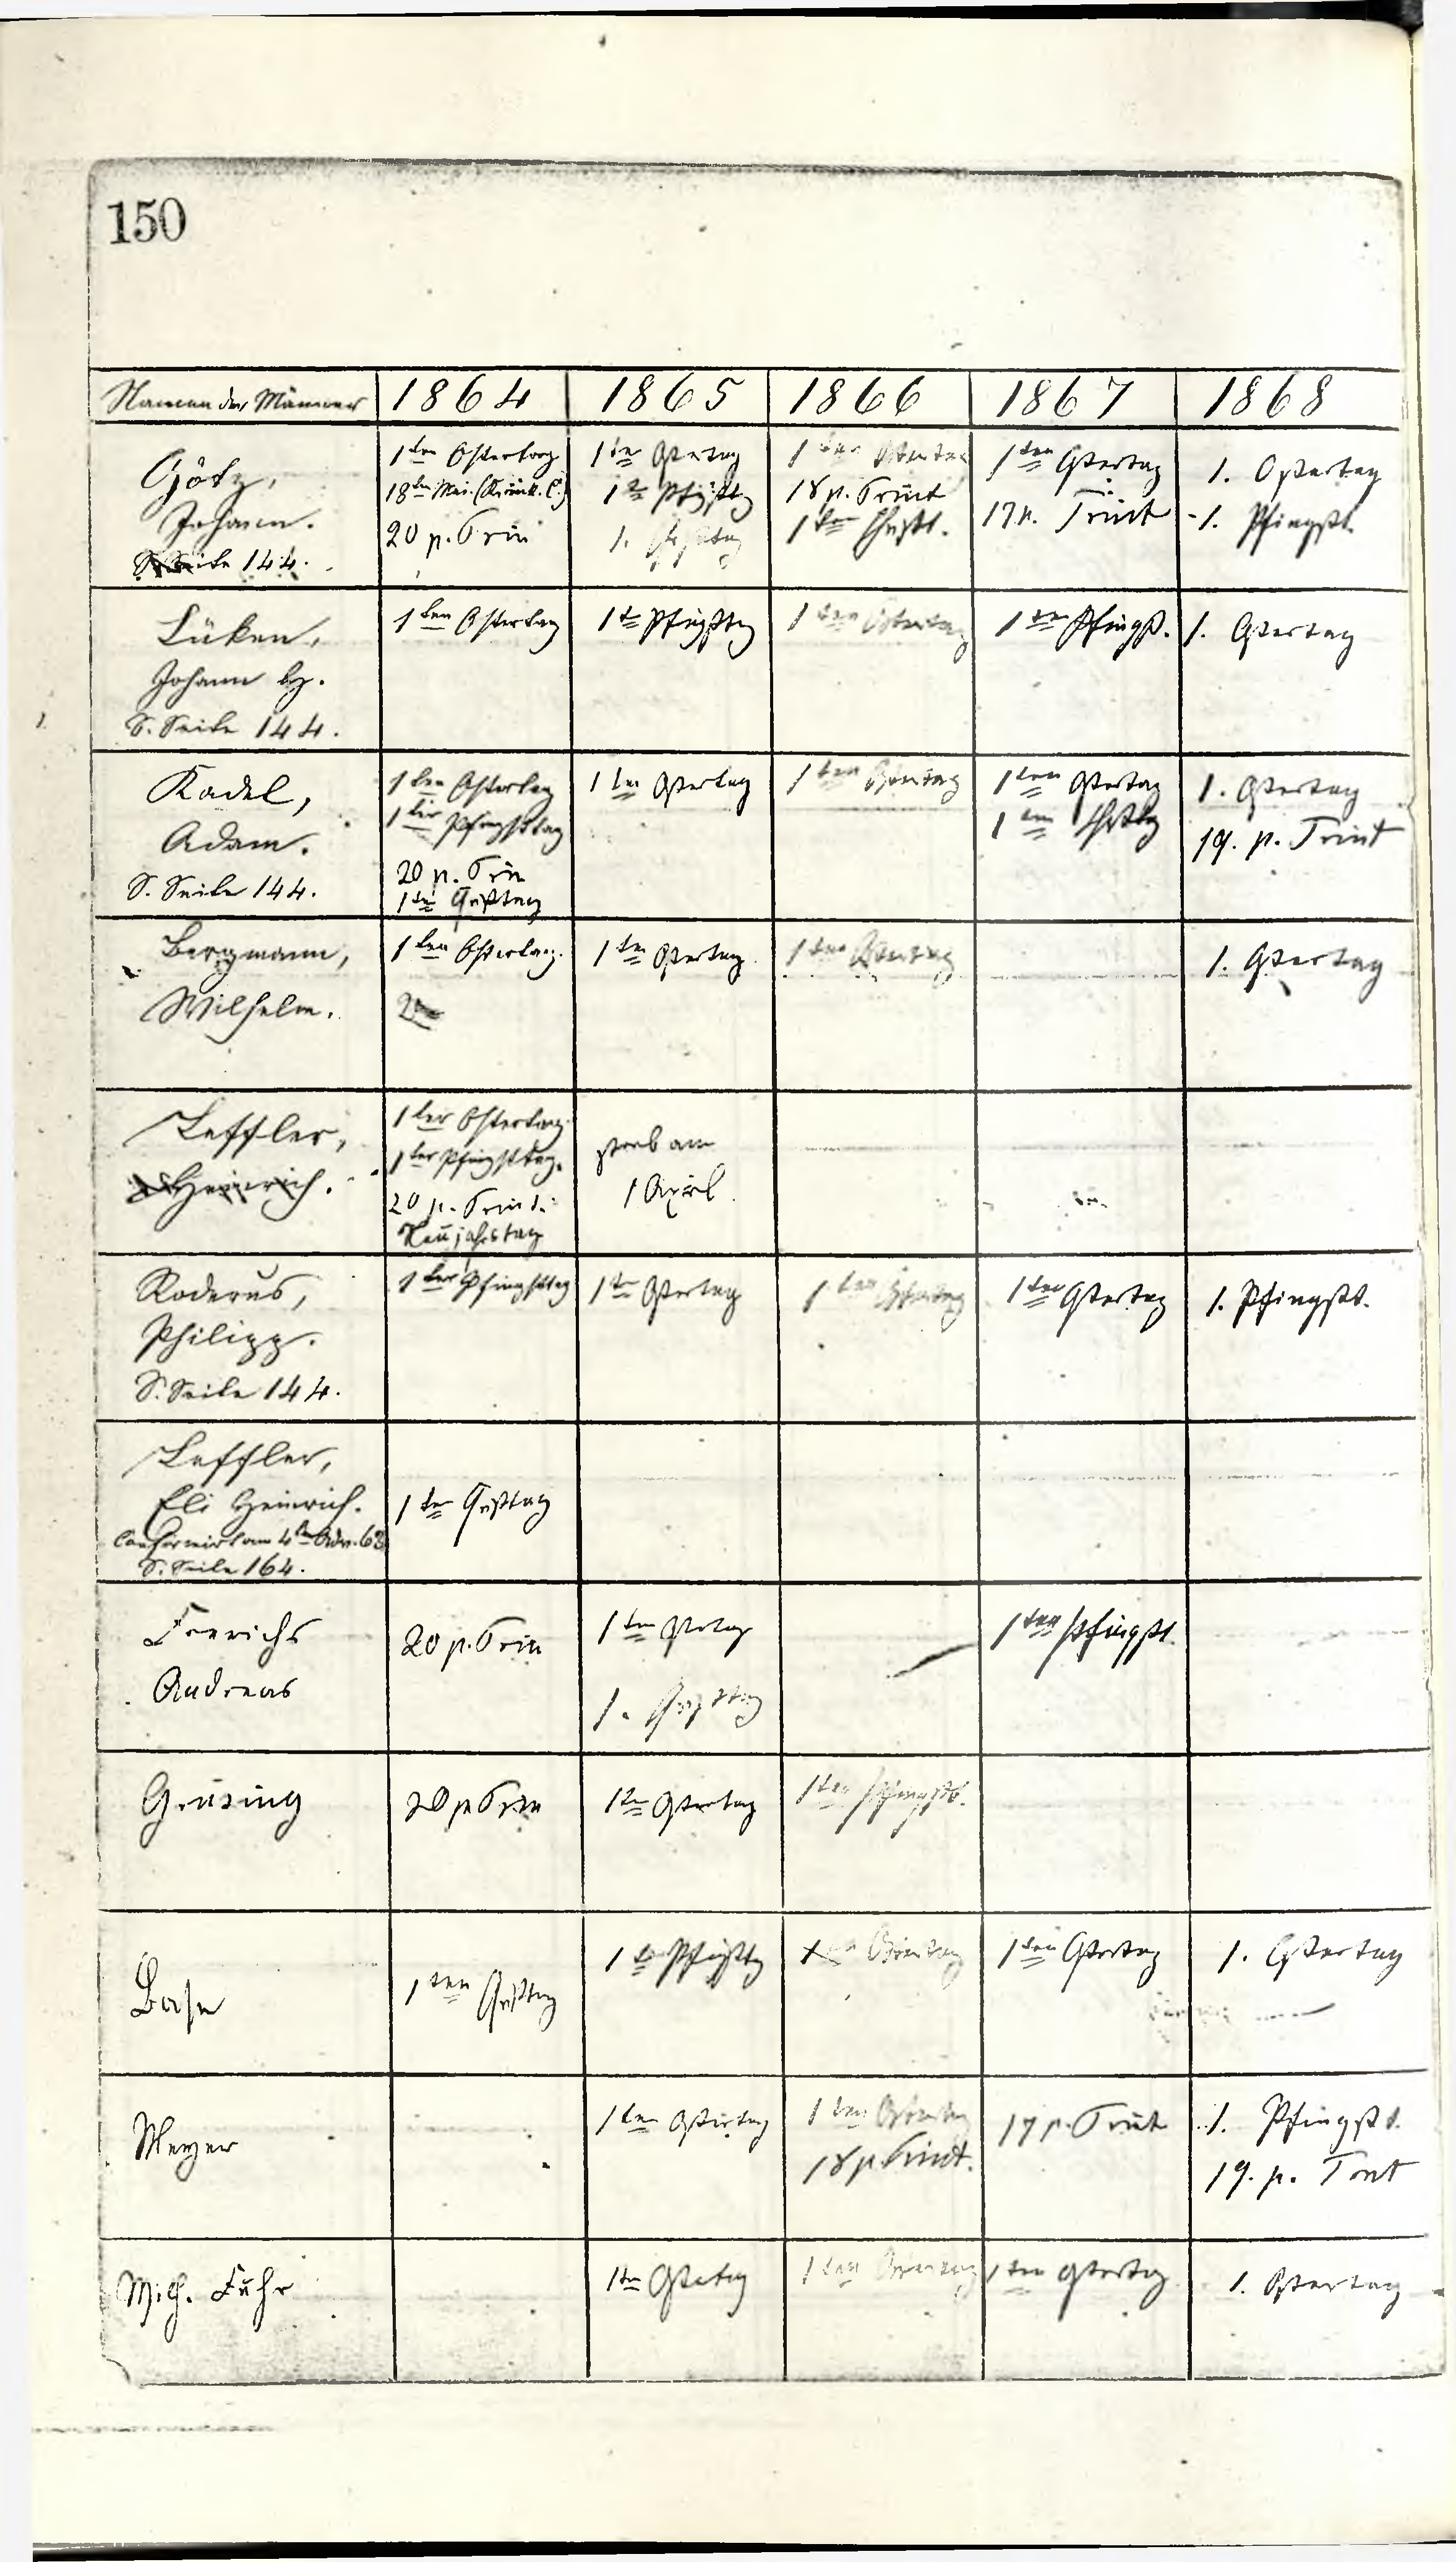 150
Namen der Männer 1864 1865 1866 1867 1868
Götz,
Johann.
S. Seite 144.
1ten Ostertag
18ten Mai. (Krank. C.)
20 p. Trin
1ten Ostertag
1ten Pfingsttg
1. Christtag
1ten Ostertag
18 p. Trinit
1ten Christt.
1ten Ostertag
17 p. Trinit
1. Ostertag
1. Pfingstt.
Lüken,
Johann H.
S. Seite 144.
1ten Ostertag
1te Pfingsttg
1ten Ostertag
1ten Pfingst.
1. Ostertag
Kadel,
Adam.
S. Seite 144.
1ten Ostertag
1ter Pfingsttag
20 p. Trin
1ten Christtag
1ten Ostertag
1ten Ostertag
1ten Ostertag
1ten Christtg
1. Ostertag
19. p. Trinit
Bergmann,
Wilhelm.
1ten Ostertag.
1ten Ostertag
1ten Ostertag
1. Ostertag
Leffler,
Heinrich.
1ter Ostertag.
1ter Pfingsttag.
20 p. Trinit.
Neujahrstag
starb am
1 April.
Roderus,
Philipp.
S. Seite 144.
1ter Pfingsttag
1te Ostertag
1ten Ostertag
1ten Ostertag
1. Pfingstt.
Leffler,
Eli Heinrich.
Confirmirt am 4ten Adv. 63
S. Seite 164.
1ten Christtag
Frerichs
Andreas
20 p. Trin
1ten Ostertag
1. Christtag
1ten Pfingstt.
Grüsing
20 p Trin
1te Ostertag
1ten Pfingstt.
Base
1ten Christtag
1te Pfingsttg
Ostertag
1ten Ostertag
1. Ostertag
Meyer
1ten Ostertag
1ten Ostertag
18 p Trinit.
17 p. Trinit
1. Pfingstt.
19. p. Trint
Mich. Fuhr
1te Ostertag
1ten Ostertag
1ten Ostertag
1. Ostertag